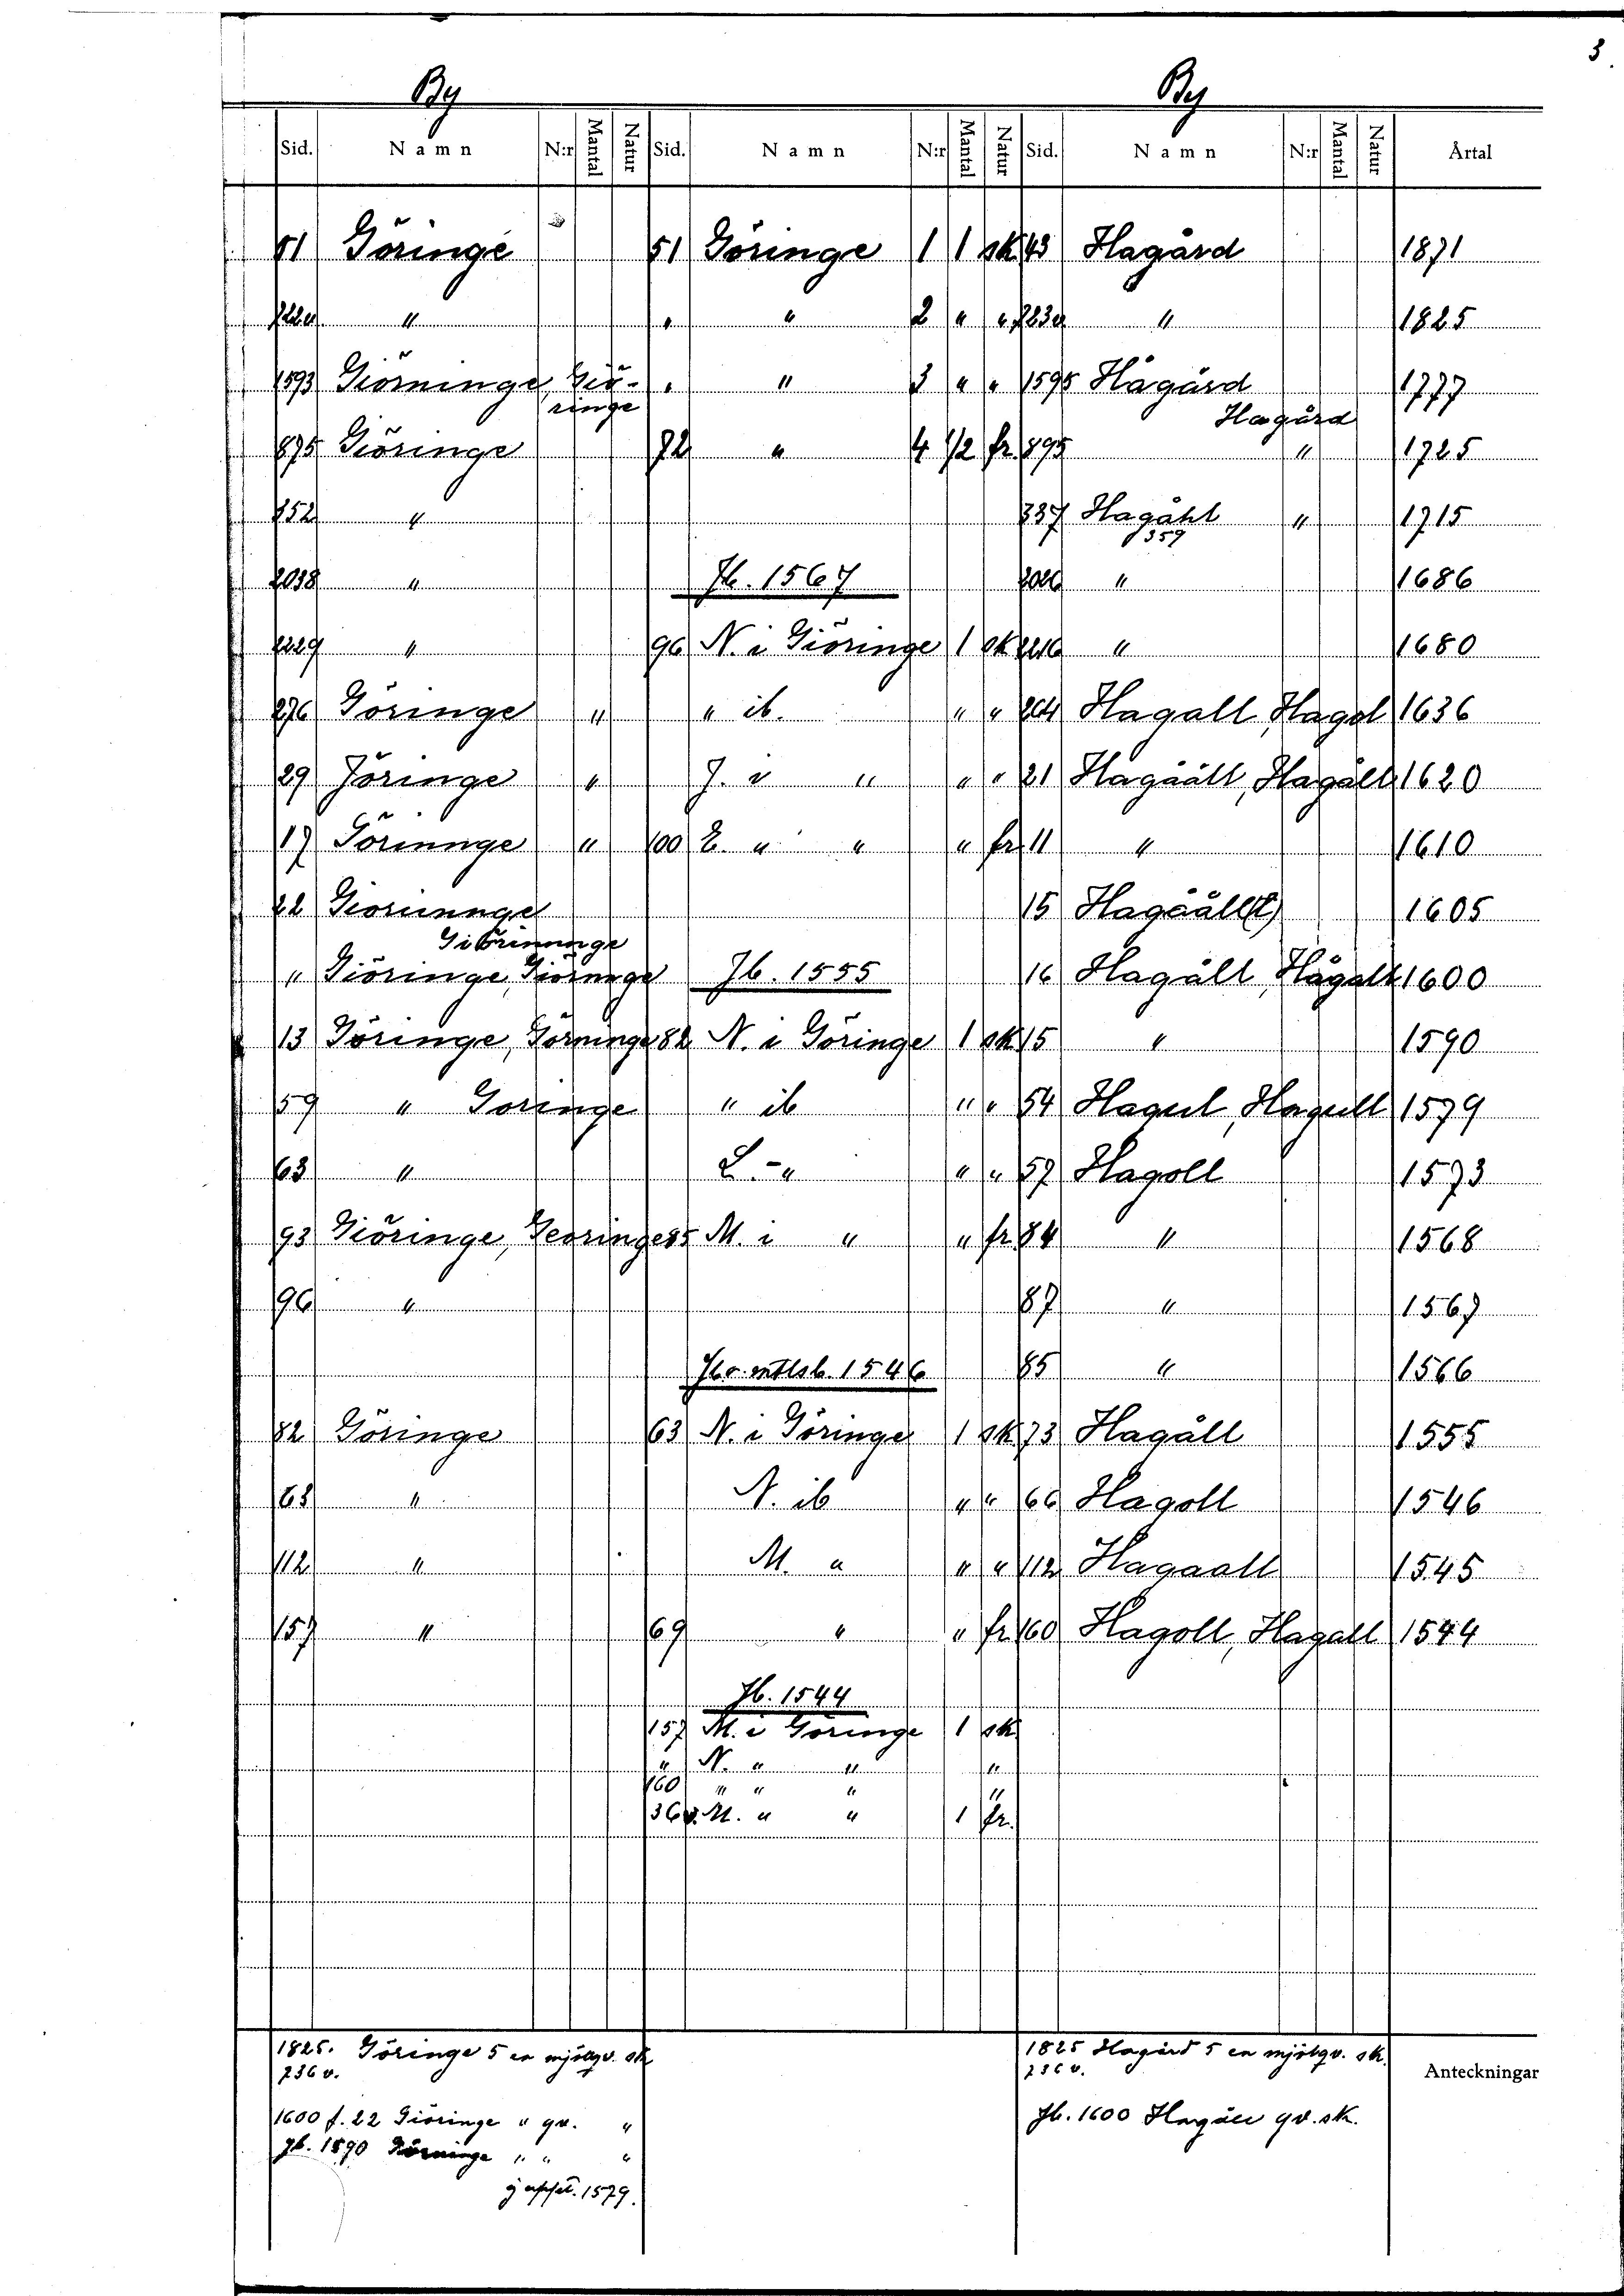 3.
By By
Sid. Namn N:r Mantal Natur Sid. Namn N:r Mantal Natur Sid. Namn N:r Mantal Natur Årtal
51 Göringe 51 Göringe 1 1 sk 43 Hagård 1871
" " " 2 " " " 1825
1593 Giörninge, Giö- " " 3 " " 1595 Hågård 1777
ringe Hagård
875 Giöringe 72 " 4 1/2 fr. 895 " 1725
852 " 337 Hagåhl " 1715
359
2038 " Jb. 1567 " 1686
2229 " 96 N. i Giöringe 1 sk " 1680
276 Göringe " " ib. " " 264 Hagall, Hagol 1636
29 Jöringe " J. i " " " 21 Hagåält, Hagält 1620
17 Göringe " 100 E. " " " fr. 11 " 1610
22 15 Hagaäll(t) 1605
" Giöringe, Jb. 1555 16 Hagåll, Hågalt 1600
13 Göringe, Görninge 82 N. i Göringe 1 sk 15 " 1590
59 " Goringe " ib " " 54 Hagul, Hagull 1579
63 " L. - " " " 57 Hagoll 1573
93 Giöringe, Georinge 85 M. i " " fr. 84 " 1568
96 " 87 " 1567
Jbr. mtlsb. 1546 85 " 1566
82 Göringe 63 N. i Göringe 1 sk 73 Hagåll 1555
63 " N. ib " " 66 Hagoll 1546
112 " M. " " " 112 Hagaall 1545
157 " 69 " " fr. 160 Hagoll, Hagall 1544
Jb. 1544
157 M. i Göringe 1 sk
" N. " " "
160 " " " "
36v. M. " " 1 fr.
1825. Göringe 5 en mjölqv. sk 1825 Hagård 5 en mjölqv. sk.
236 v. 236 v. Anteckningar
1600 f. 22 Giöringe " qv. " Jb. 1600 Hagåll qv. sk.
Jb. 1590 Görninge " " "
1579.